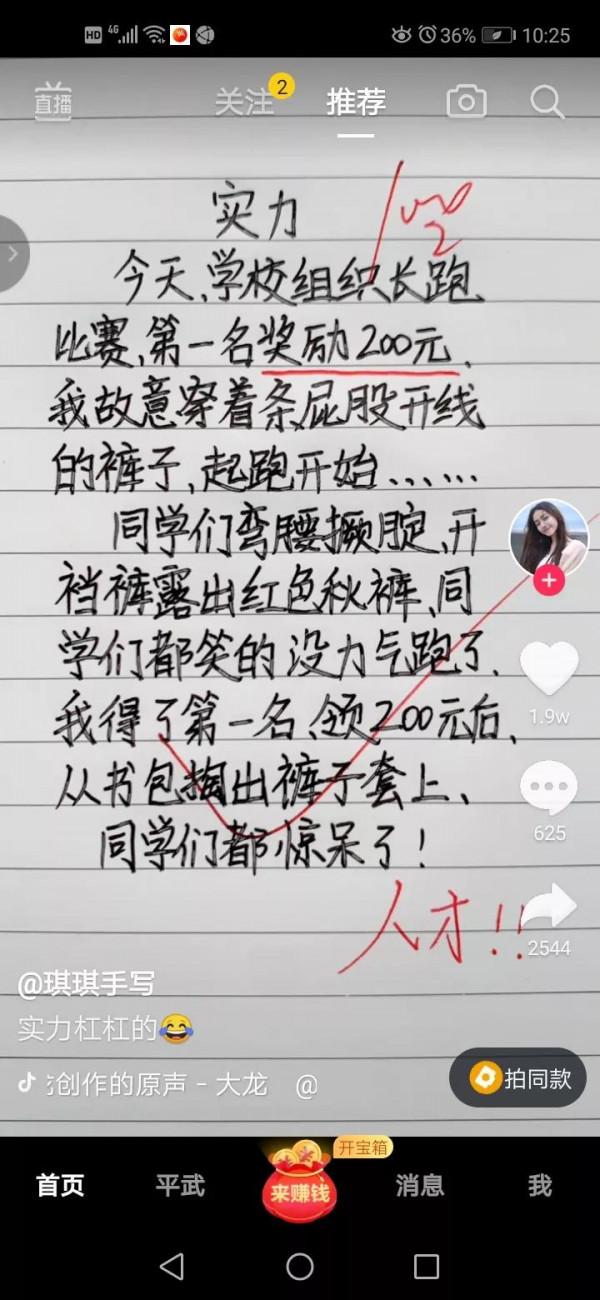 HD 4G 36% 10:25
直播 关注 2 推荐
实力 100
今天,学校组织长跑
比赛,第一名奖励200元,
我故意穿着条屁股开线
的裤子,起跑开始……
同学们弯腰撅腚,开
裆裤露出红色秋裤,同
学们都笑的没力气跑了,
我得了第一名,领200元后,
从书包掏出裤子套上,
同学们都惊呆了!
人才!!
1.9w
625
2544
@琪琪手写
实力杠杠的😂
创作的原声 - 大龙 @
拍同款
开宝箱
首页 平武 来赚钱 消息 我